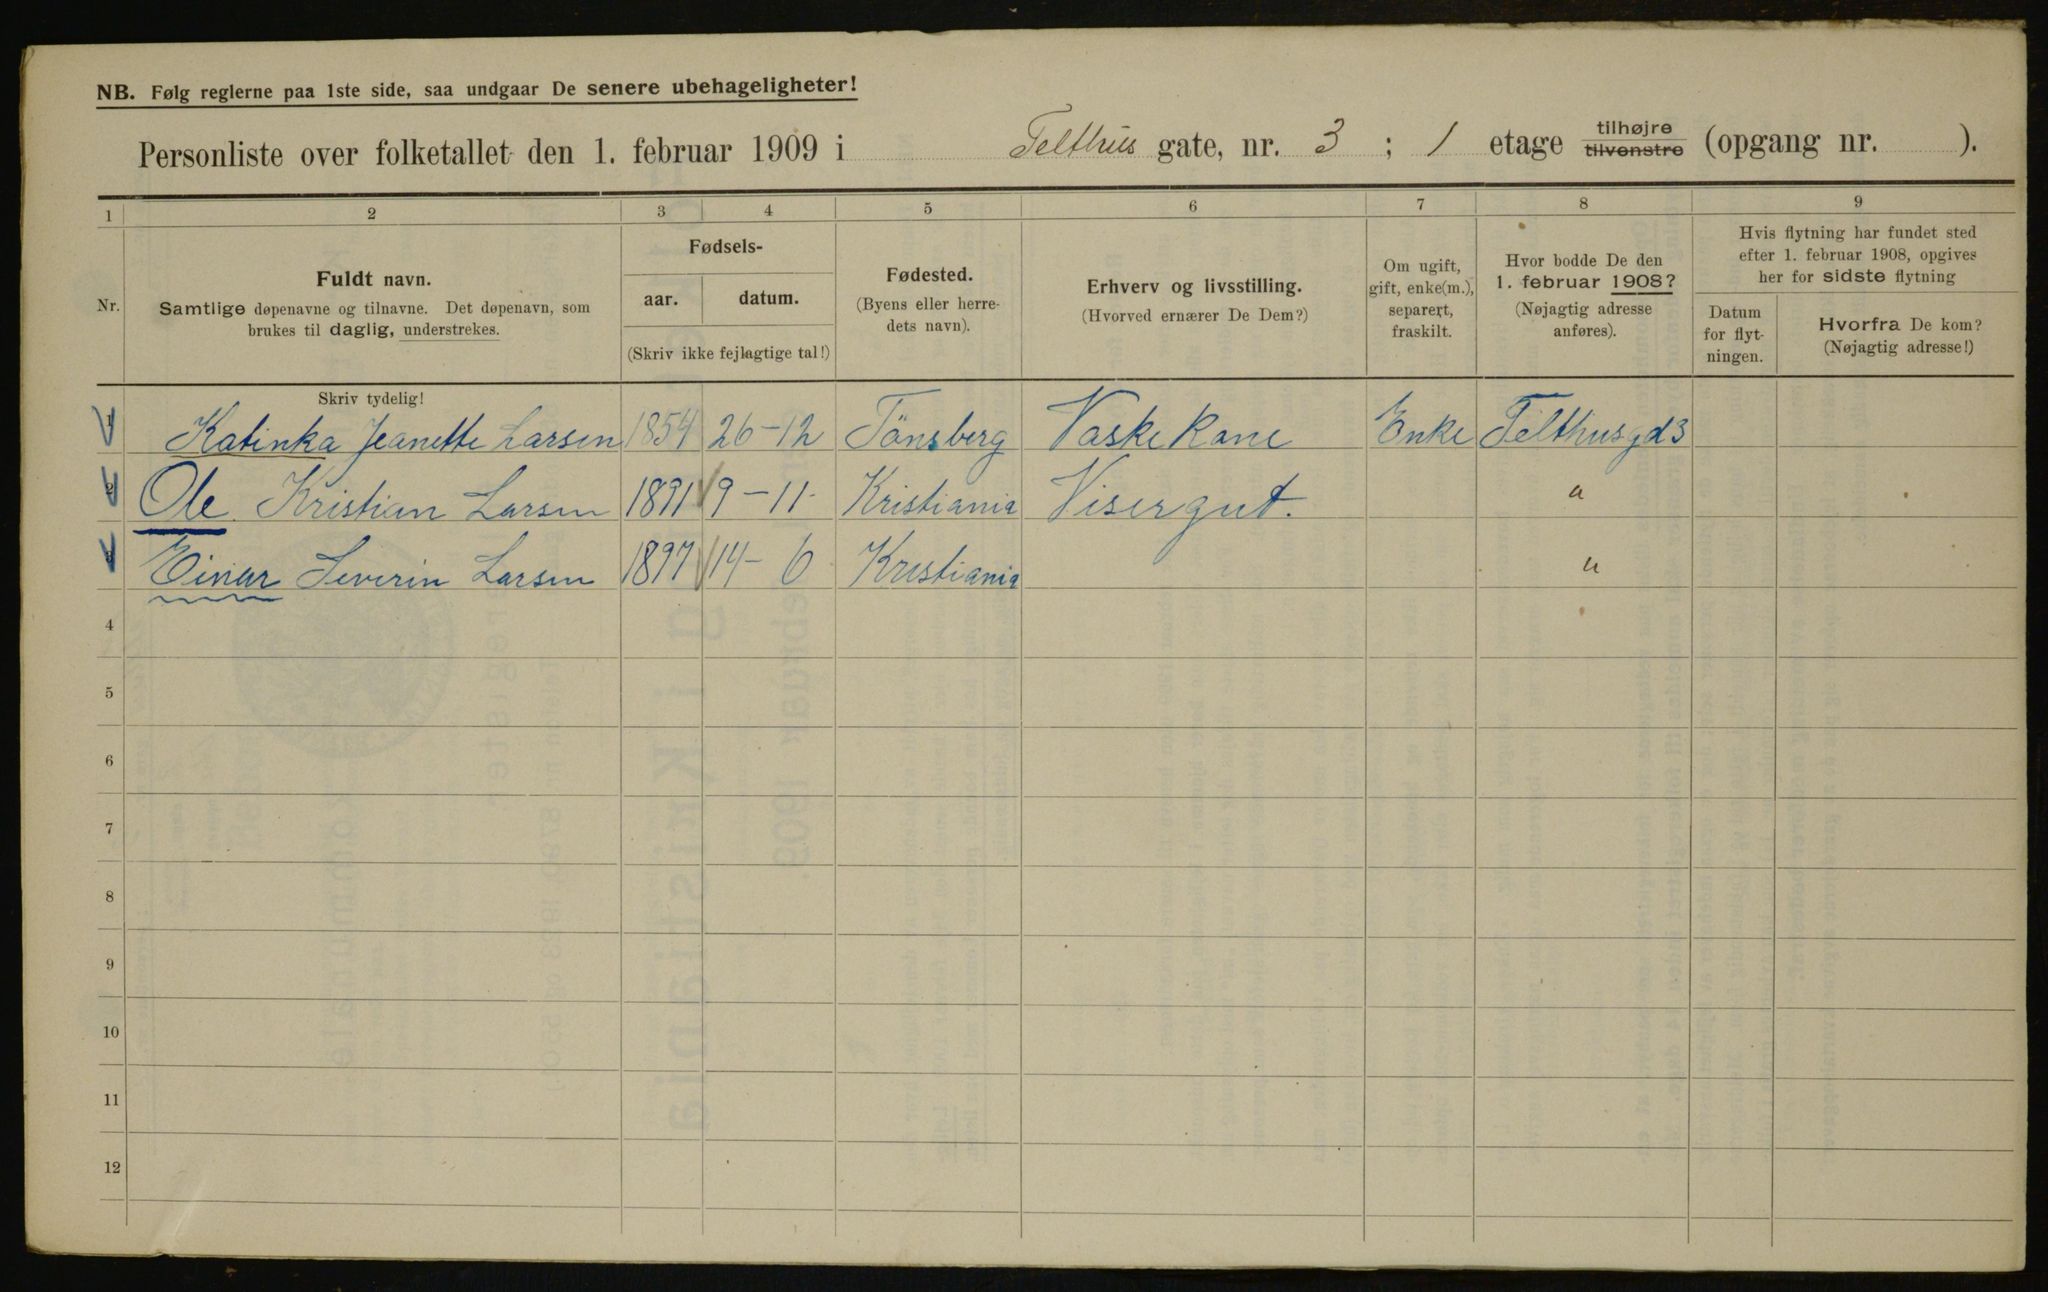 NB. Følg reglerne paa 1ste side, saa undgaar De senere ubehageligheter!
Personliste over folketallet den 1. februar 1909 i Telthus gate, nr. 3 ; 1 etage tilhøjre tilvenstre (opgang nr. ).
1 2 3 4 5 6 7 8 9
Nr.
Fuldt navn.
Samtlige døpenavne og tilnavne. Det døpenavn, som
brukes til daglig, understrekes.
Fødsels-
aar. datum.
(Skriv ikke fejlagtige tal!)
Fødested.
(Byens eller herre-
dets navn).
Erhverv og livsstilling.
(Hvorved ernærer De Dem?)
Om ugift,
gift, enke(m.),
separert,
fraskilt.
Hvor bodde De den
1. februar 1908?
(Nøjagtig adresse
anføres).
Hvis flytning har fundet sted
efter 1. februar 1908, opgives
her for sidste flytning
Datum
for flyt-
ningen.
Hvorfra De kom?
(Nøjagtig adresse!)
Skriv tydelig!
1 Katinka Jeanette Larsen 1854 26-12 Tönsberg Vaskekone Enke Telthusgd 3
2 Ole Kristian Larsen 1891 9-11 Kristiania Visergut. "
3 Einar Severin Larsen 1897 14-6 Kristiania "
4
5
6
7
8
9
10
11
12